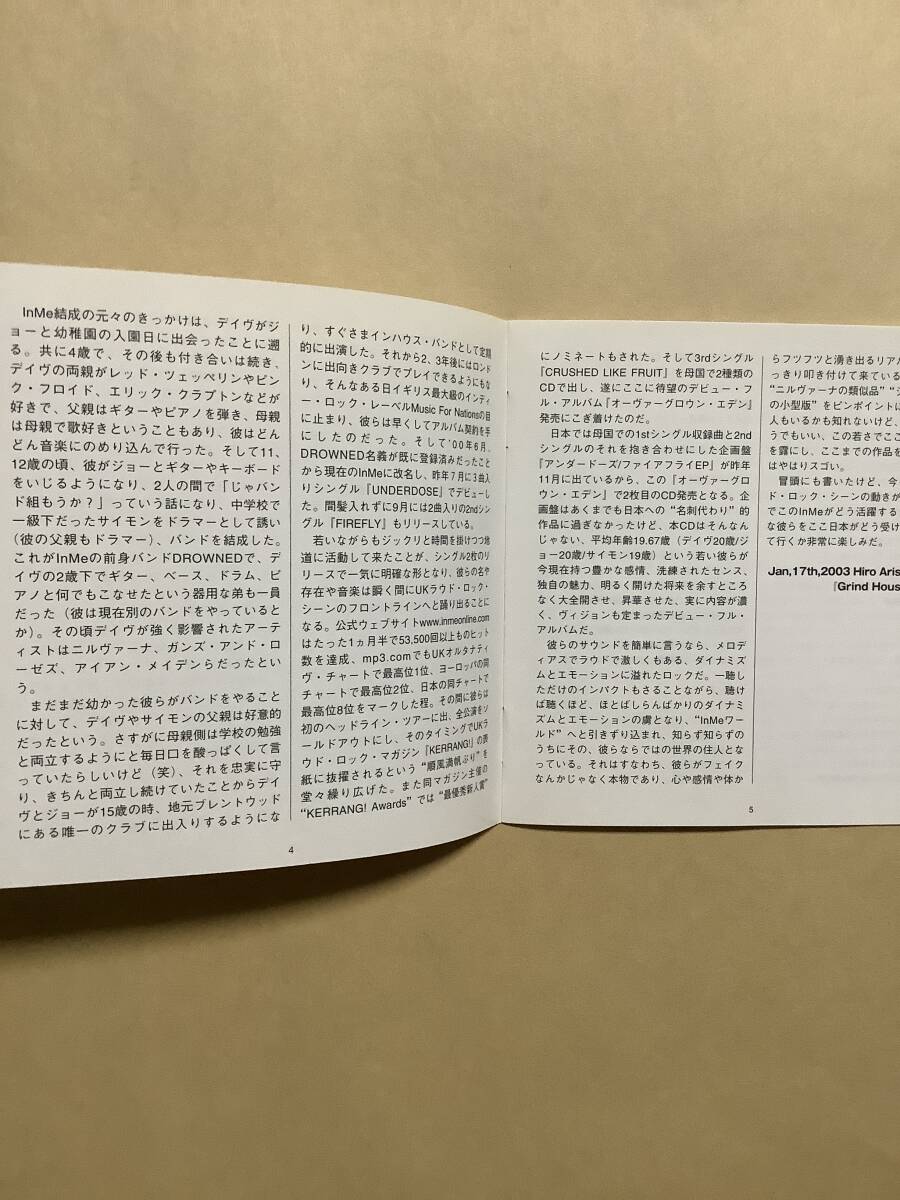 InMe結成の元々のきっかけは、デイヴがジ
ョーと幼稚園の入園日に出会ったことに遡
る。共に4歳で、その後も付き合いは続き、
デイヴの両親がレッド・ツェッペリンやピン
ク・フロイド、エリック・クラプトンなどが
好きで、父親はギターやピアノを弾き、母親
は母親で歌好きということもあり、彼はどん
どん音楽にのめり込んで行った。そして11、
12歳の頃、彼がジョーとギターやキーボード
をいじるようになり、2人の間で「じゃバン
ド組もうか？」っていう話になり、中学校で
一級下だったサイモンをドラマーとして誘い
(彼の父親もドラマー)、バンドを結成した。
これがInMeの前身バンドDROWNEDで、デ
イヴの2歳下でギター、ベース、ドラム、ピ
アノと何でもこなせたという器用な弟も一員
だった（彼は現在別のバンドをやっていると
か）。その頃デイヴが強く影響されたアーテ
ィストはニルヴァーナ、ガンズ・アンド・ロ
ーゼズ、アイアン・メイデンらだったとい
う。
まだまだ幼かった彼らがバンドをやること
に対して、デイヴやサイモンの父親は好意的
だったという。さすがに母親側は学校の勉強
と両立するようにと毎日口を酸っぱくして言
っていたらしいけど（笑）、それを忠実に守
り、きちんと両立し続けていたことからデイ
ヴとジョーが15歳の時、地元ブレントウッド
にある唯一のクラブに出入りするようにな
り、すぐさまインハウス・バンドとして定期
的に出演した。それから2、3年後にはロンド
ンに出向きクラブでプレイできるようにもな
り、そんなある日イギリス最大級のインディ
ー・ロック・レーベルMusic For Nationsの目
に止まり、彼らは早くしてアルバム契約を手
にしたのだった。そして'00年6月、
DROWNED名義が既に登録済みだったこと
から現在のInMeに改名し、昨年7月に3曲入
りシングル『UNDERDOSE』でデビューし
た。間髪入れずに9月には2曲入りの2ndシン
グル『FIREFLY』もリリースしている。
若いながらもジックリと時間を掛けつつ地
道に活動して来たことが、シングル2枚のリ
リースで一気に明確な形となり、彼らの名や
存在や音楽は瞬く間にUKラウド・ロック・
シーンのフロントラインへと踊り出ることに
なる。公式ウェブサイトwww.inmeonline.com
はたった1ヵ月半で53,500回以上ものヒット
数を達成、mp3.comでもUKオルタナティ
ヴ・チャートで最高位1位、ヨーロッパの同
チャートで最高位2位、日本の同チャートで
最高位8位をマークした程。その間に彼らは
初のヘッドライン・ツアーに出、全公演をソ
ールドアウトにし、そのタイミングでUKラ
ウド・ロック・マガジン『KERRANG!』の表
紙に抜擢されるという“順風満帆ぶり”を
堂々繰り広げた。また同マガジン主催の
“KERRANG! Awards”では“最優秀新人賞”
4
にノミネートもされた。そして3rdシングル
『CRUSHED LIKE FRUIT』を母国で2種類の
CDで出し、遂にここに待望のデビュー・フ
ル・アルバム『オーヴァーグロウン・エデン』
発売にこぎ着けたのだ。
日本では母国での1stシングル収録曲と2nd
シングルのそれを抱き合わせにした企画盤
『アンダードーズ/ファイアフライEP』が昨年
11月に出ているから、この『オーヴァーグロ
ウン・エデン』で2枚目のCD発売となる。企
画盤はあくまでも日本への“名刺代わり”的
作品に過ぎなかったけど、本CDはそんなん
じゃない、平均年齢19.67歳（デイヴ20歳/ジ
ョー20歳/サイモン19歳）という若い彼らが
今現在持つ豊かな感情、洗練されたセンス、
独自の魅力、明るく開けた将来を余すところ
なく大全開させ、昇華させた、実に内容が濃
く、ヴィジョンも定まったデビュー・フル・
アルバムだ。
彼らのサウンドを簡単に言うなら、メロデ
ィアスでラウドで激しくもある、ダイナミズ
ムとエモーションに溢れたロックだ。一聴し
ただけのインパクトもさることながら、聴け
ば聴くほど、ほとばしらんばかりのダイナミ
ズムとエモーションの虜となり、“InMeワー
ルド”へと引きずり込まれ、知らず知らずの
うちにその、彼らならではの世界の住人とな
っている。それはすなわち、彼らがフェイク
なんかじゃなく本物であり、心や感情や体か
5
らフツフツと湧き出るリアル
っきり叩き付けて来ている
“ニルヴァーナの類似品”“
の小型版”をピンポイントに
人もいるかも知れないけど、
うでもいい、この若さでここ
を露にし、ここまでの作品を
はやはりスゴい。
冒頭にも書いたけど、今
ド・ロック・シーンの動きが
でこのInMeがどう活躍する
な彼らをここ日本がどう受け
て行くか非常に楽しみだ。
Jan,17th,2003 Hiro Aris
『Grind Hous